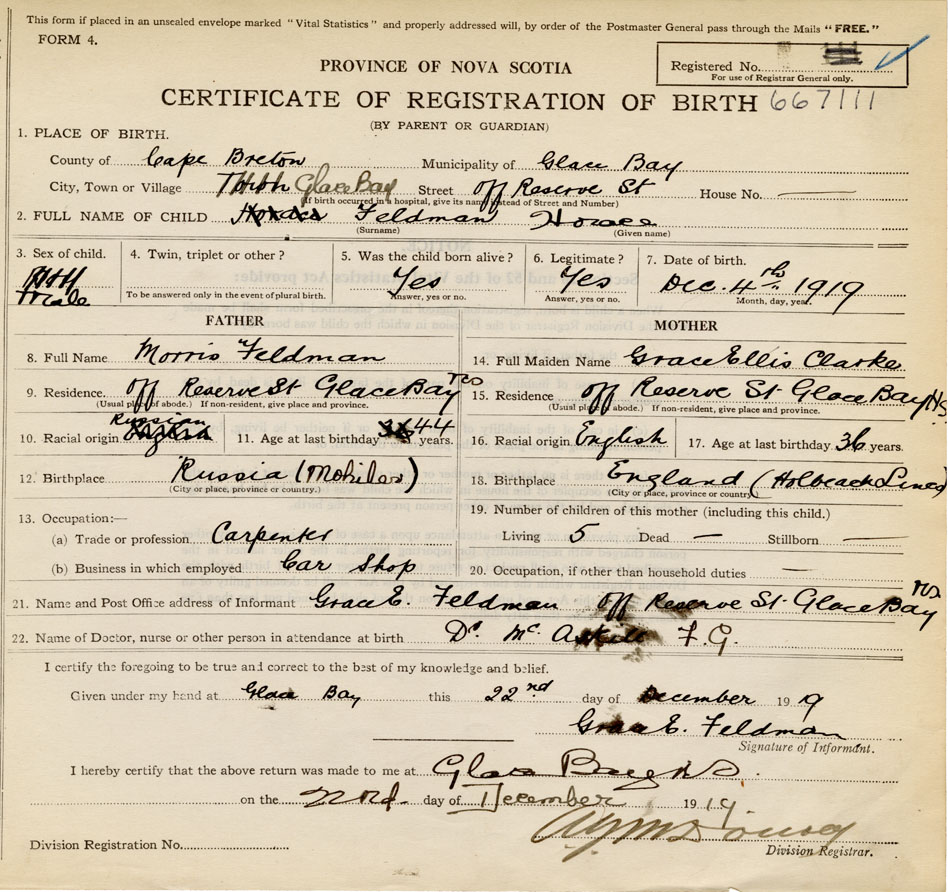 This form if placed in an unsealed envelope marked "Vital Statistics" and properly addressed will, by order of the Postmaster General pass through the Mails "FREE."
FORM 4.
Registered No.
For use of Registrar General only.
PROVINCE OF NOVA SCOTIA
CERTIFICATE OF REGISTRATION OF BIRTH 667111
(BY PARENT OR GUARDIAN)
1. PLACE OF BIRTH.
County of Cape Breton Municipality of Glace Bay
City, Town or Village Glace Bay Street off Reserve St House No. —
(If birth occurred in a hospital, give its name instead of Street and Number)
2. FULL NAME OF CHILD Feldman Horace
(Surname) (Given name)
3. Sex of child. 4. Twin, triplet or other? 5. Was the child born alive? 6. Legitimate? 7. Date of birth.
Male Yes Yes Dec. 4th 1919
To be answered only in the event of plural birth. Answer, yes or no. Answer, yes or no. Month, day, year.
FATHER MOTHER
8. Full Name Morris Feldman 14. Full Maiden Name Grace Ellis Clarke
9. Residence. off Reserve St Glace Bay NS 15. Residence off Reserve St Glace Bay NS
(Usual place of abode.) If non-resident, give place and province. (Usual place of abode.) If non-resident, give place and province.
10. Racial origin Russian 11. Age at last birthday 44 years. 16. Racial origin English 17. Age at last birthday 36 years.
12. Birthplace Russia (Mohilev) 18. Birthplace England (Holbeach Lincs)
(City or place, province or country.) (City or place, province or country)
13. Occupation:— 19. Number of children of this mother (including this child.)
(a) Trade or profession Carpenter Living 5 Dead — Stillborn —
(b) Business in which employed Car Shop 20. Occupation, if other than household duties —
21. Name and Post Office address of Informant Grace E. Feldman off Reserve St. Glace Bay NS
22. Name of Doctor, nurse or other person in attendance at birth Dr. Mc. Askill F. G.
I certify the foregoing to be true and correct to the best of my knowledge and belief.
Given under my hend at Glace Bay this 22nd day of December 1919
Grace E. Feldman
Signature of Informant.
I hereby certify that the above return was made to me at Glace Bay NS.
on the 22nd. day of December 1919.
Division Registration No. Division Registrar.